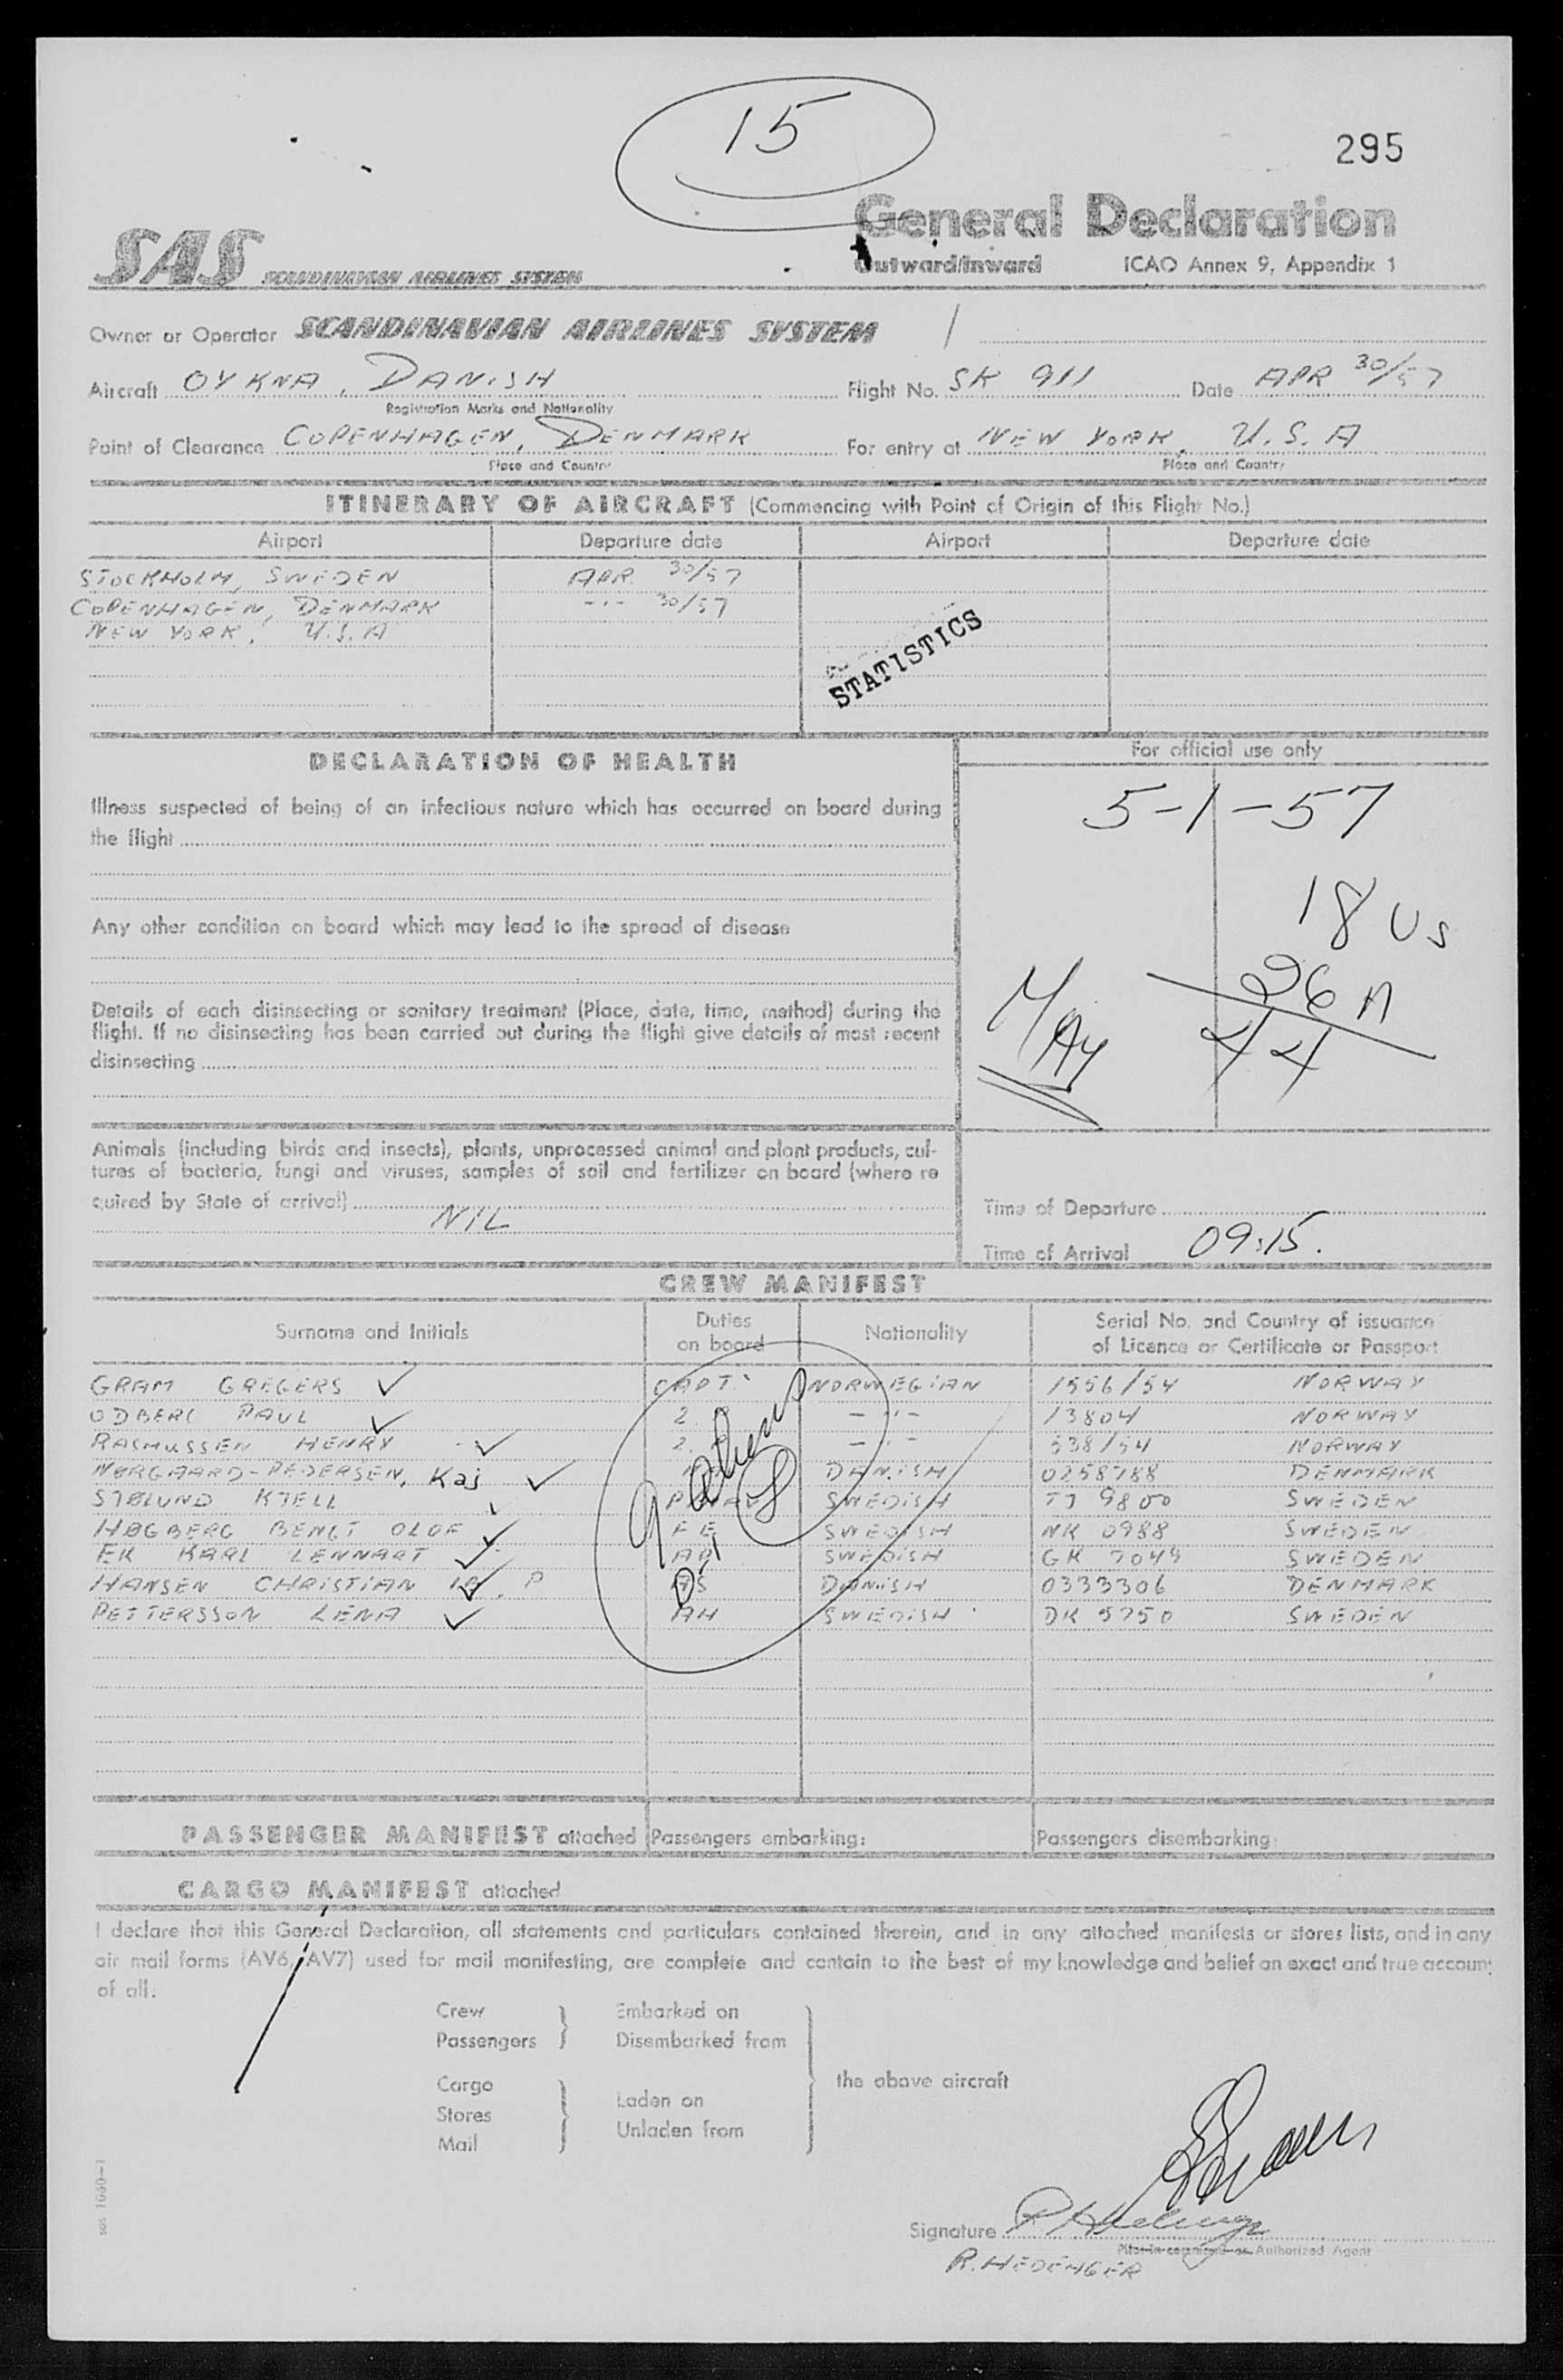 15
295
General Declaration
Outward/Inward ICAO Annex 9, Appendix 1
SAS SCANDINAVIAN AIRLINES SYSTEM
Owner or Operator SCANDINAVIAN AIRLINES SYSTEM
Aircraft OYKNA, DANISH Flight No. SK 911 Date APR 30/57
Registration Marks and Nationality
Point of Clearance COPENHAGEN, DENMARK For entry at NEW YORK, U.S.A
Place and Country Place and Country
ITINERARY OF AIRCRAFT (Commencing with Point of Origin of this Flight No.)
Airport Departure date Airport Departure date
STOCKHOLM, SWEDEN APR. 30/57
COPENHAGEN, DENMARK -"- 30/57
NEW YORK, U.S.A
STATISTICS
DECLARATION OF HEALTH
Illness suspected of being of an infectious nature which has occurred on board during
the flight
Any other condition on board which may lead to the spread of disease
Details of each disinsecting or sanitary treatment (Place, date, time, method) during the
flight. If no disinsecting has been carried out during the flight give details of most recent
disinsecting
Animals (including birds and insects), plants, unprocessed animal and plant products, cul-
tures of bacteria, fungi and viruses, samples of soil and fertilizer on board (where re
quired by State of arrival)
NIL
For official use only
5-1-57
18 US
26 A
44
MAY
Time of Departure
Time of Arrival 09:15.
CREW MANIFEST
Surname and Initials Duties on board Nationality Serial No. and Country of issuance
of Licence or Certificate or Passport
GRAM GREGERS CAPT. NORWEGIAN 1556/54 NORWAY
ODBERG PAUL 2. -"- 13804 NORWAY
RASMUSSEN HENRY 2. -"- 538/54 NORWAY
NØRGAARD-PEDERSEN, Kaj DANISH 0258788 DENMARK
SJØLUND KJELL SWEDISH TJ 9800 SWEDEN
HØGBERG BENGT OLOF FE SWEDISH NK 0988 SWEDEN
EK KARL LENNART SWEDISH GK 7049 SWEDEN
HANSEN CHRISTIAN P AS DANISH 0333306 DENMARK
PETTERSSON LENA AH SWEDISH DK 5750 SWEDEN
PASSENGER MANIFEST attached Passengers embarking: Passengers disembarking:
CARGO MANIFEST attached
I declare that this General Declaration, all statements and particulars contained therein, and in any attached manifests or stores lists, and in any
air mail forms (AV6, AV7) used for mail manifesting, are complete and contain to the best of my knowledge and belief an exact and true account
of all.
Crew Embarked on
Passengers Disembarked from
the above aircraft
Cargo
Stores Laden on
Mail Unladen from
Signature
Pilot-in-command or Authorized Agent
R. HEDENGER